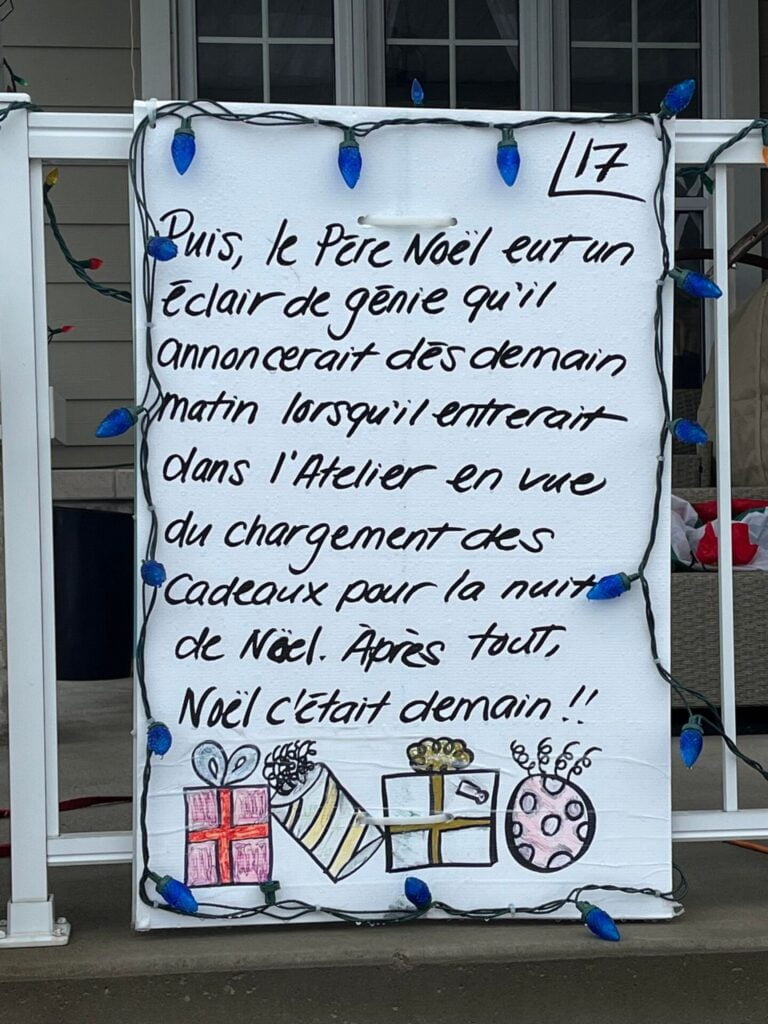 17
Puis, le Père Noël eut un
éclair de génie qu'il
annoncerait dès demain
matin lorsqu'il entrerait
dans l'Atelier en vue
du chargement des
cadeaux pour la nuit
de Noël. Après tout,
Noël c'était demain !!